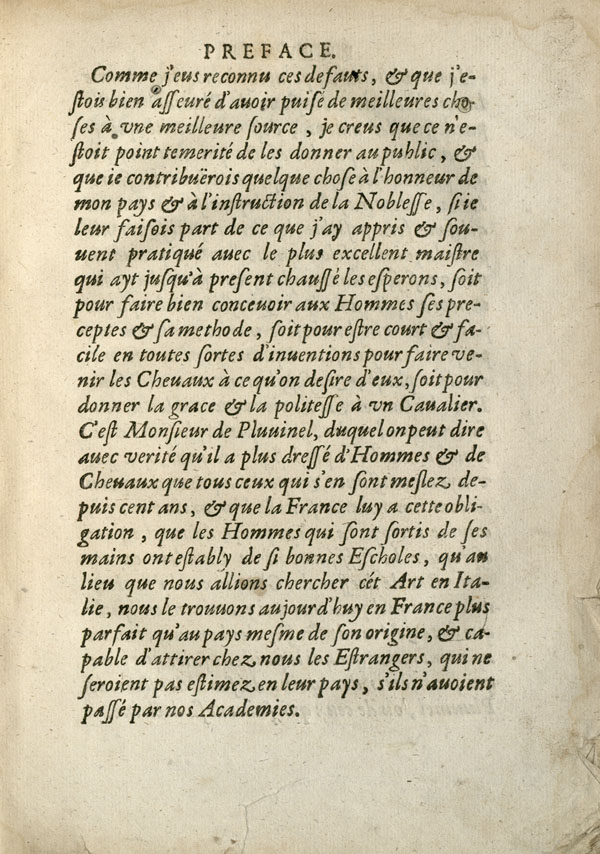 PREFACE.
Comme j'eus reconnu ces defauts, & que j'e-
ſtois bien aſſeuré d'auoir puiſé de meilleures cho-
ſes à vne meilleure ſource, je creus que ce n'e-
ſtoit point temerité de les donner au public, &
que ie contribuërois quelque choſe à l'honneur de
mon pays & à l'inſtruction de la Nobleſſe, ſi ie
leur faiſois part de ce que j'ay appris & ſou-
uent pratiqué auec le plus excellent maiſtre
qui ayt juſqu'à preſent chauſſé les eſperons, ſoit
pour faire bien conceuoir aux Hommes ſes pre-
ceptes & ſa methode, ſoit pour eſtre court & fa-
cile en toutes ſortes d'inuentions pour faire ve-
nir les Cheuaux à ce qu'on deſire d'eux, ſoit pour
donner la grace & la politeſſe à vn Caualier.
C'eſt Monſieur de Pluuinel, duquel on peut dire
auec verité qu'il a plus dreſſé d'Hommes & de
Cheuaux que tous ceux qui s'en ſont meſlez de-
puis cent ans, & que la France luy a cette obli-
gation, que les Hommes qui ſont ſortis de ſes
mains ont eſtably de ſi bonnes Eſcholes, qu'au
lieu que nous allions chercher cét Art en Ita-
lie, nous le trouuons aujourd'huy en France plus
parfait qu'au pays meſme de ſon origine, & ca-
pable d'attirer chez nous les Eſtrangers, qui ne
ſeroient pas eſtimez en leur pays, s'ils n'auoient
paſſé par nos Academies.